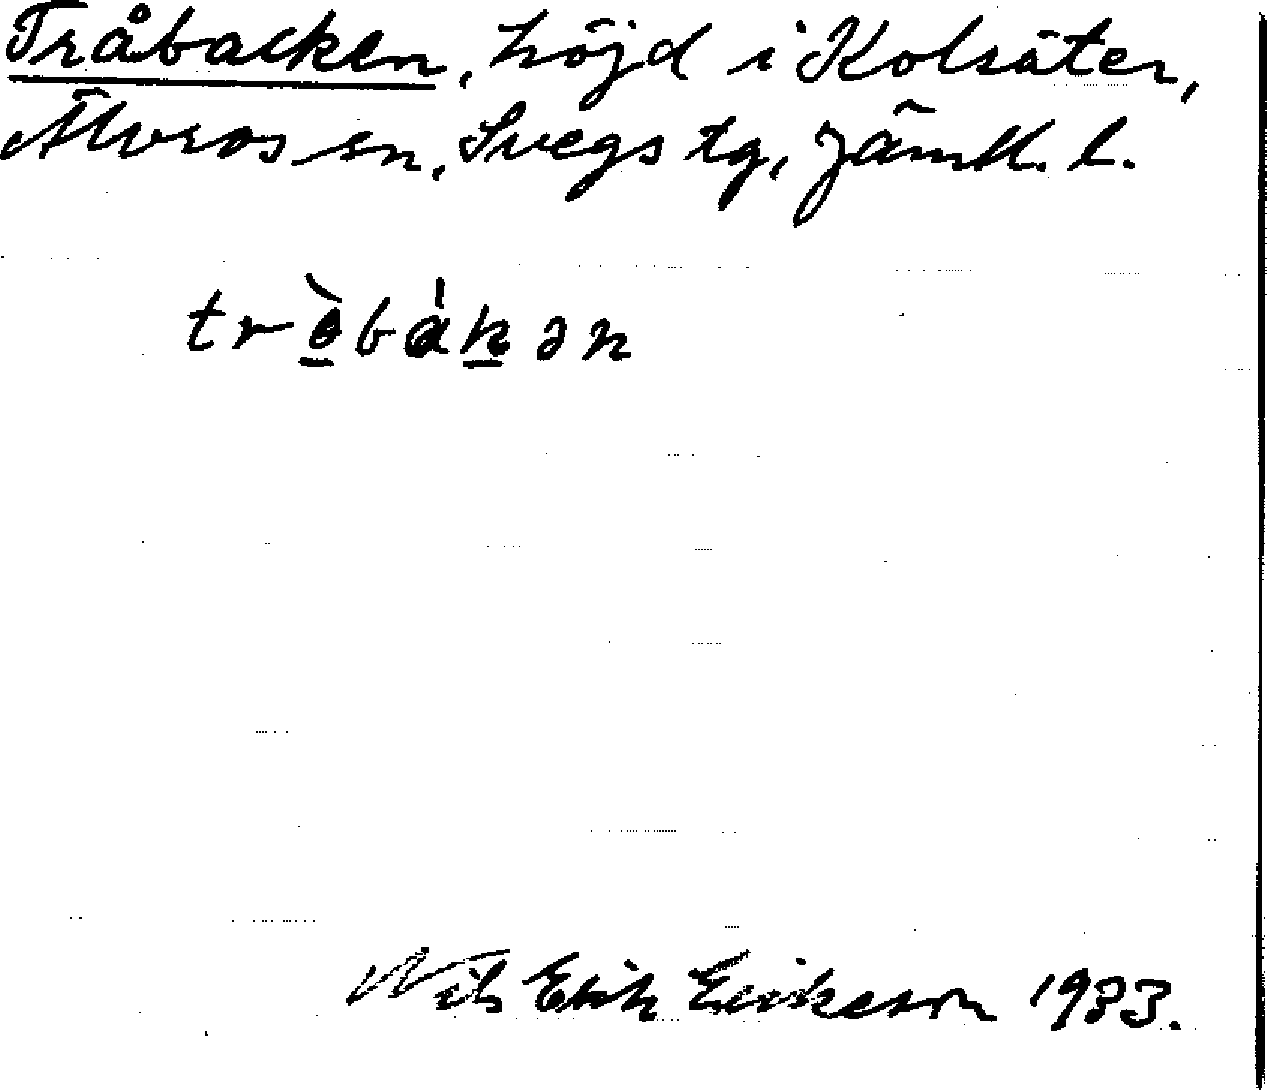 Tråbacken, höjd i Kolsäter,
Älvros sn, Svegs tg, Jämtl. l.
trə̀bàkən
Nils Erik Eriksson 1983.